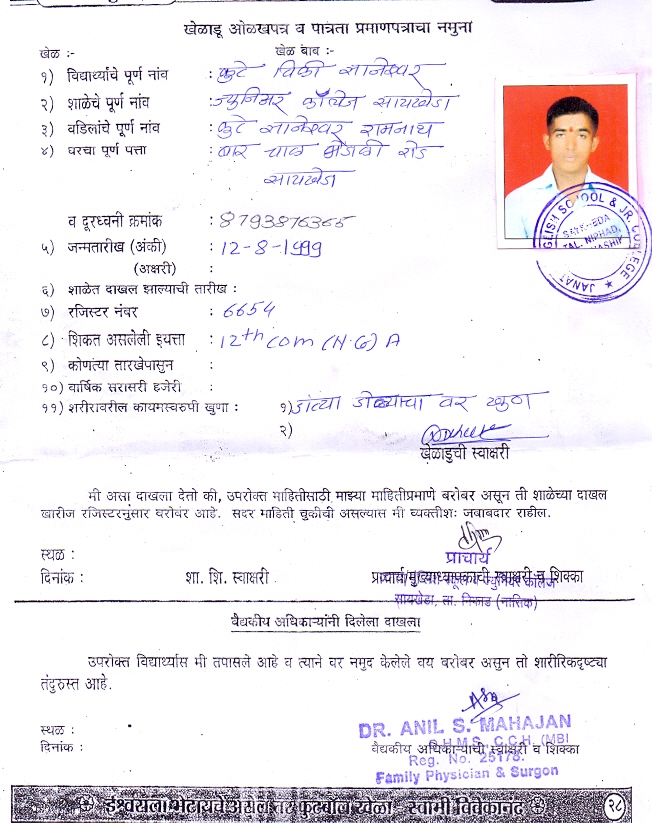 खेळाडू ओळखपत्र व पात्रता प्रमाणपत्राचा नमुना
खेळ :- खेळ बाब :-
१) विद्यार्थ्यांचे पूर्ण नांव : कुटे विकी ज्ञानेश्वर
२) शाळेचे पूर्ण नांव : ज्युनिअर कॉलेज सायखेडा
३) वडिलांचे पूर्ण नांव : कुटे ज्ञानेश्वर रामनाथ
४) घरचा पूर्ण पत्ता : चाळ रोड
सायखेडा
व दूरध्वनी क्रमांक :
५) जन्मतारीख (अंकी) : 12-8-1999
(अक्षरी) :
६) शाळेत दाखल झाल्याची तारीख :
७) रजिस्टर नंबर : 6654
८) शिकत असलेली इयत्ता : 12th com (N.G) A
९) कोणत्या तारखेपासुन :
१०) वार्षिक सरासरी हजेरी :
११) शरीरावरील कायमस्वरुपी खुणा : १) डाव्या डोळ्याचा वर खुण
२)
खेळाडुची स्वाक्षरी
ENGLISH SCHOOL & JR. COLLEGE
SAYKHEDA
TAL. NIPHAD,
NASHIK
JANATA
मी असा दाखला देतो की, उपरोक्त माहितीसाठी माझ्या माहितीप्रमाणे बरोबर असून ती शाळेच्या दाखल
खारीज रजिस्टरनुसार बरोबर आहे. सदर माहिती चुकीची असल्यास मी व्यक्तीशः जबाबदार राहील.
स्थळ :
प्राचार्य
दिनांक : शा. शि. स्वाक्षरी प्राचार्य/मुख्याध्यापकाची स्वाक्षरी व शिक्का
सायखेडा, ता. निफाड (नासिक)
वैद्यकीय अधिकाऱ्यांनी दिलेला दाखला
उपरोक्त विद्यार्थ्यास मी तपासले आहे व त्याने वर नमुद केलेले वय बरोबर असुन तो शारीरिकदृष्ट्या
तंदुरुस्त आहे.
स्थळ :
DR. ANIL S. MAHAJAN
D.H.M.S., C.C.H. (MB)
दिनांक : वैद्यकीय अधिकाऱ्याची स्वाक्षरी व शिक्का
Reg. No. 25178.
Family Physician & Surgon
ईश्वराला भेटायचे असेल तर फुटबॉल खेळा - स्वामी विवेकानंद
२८